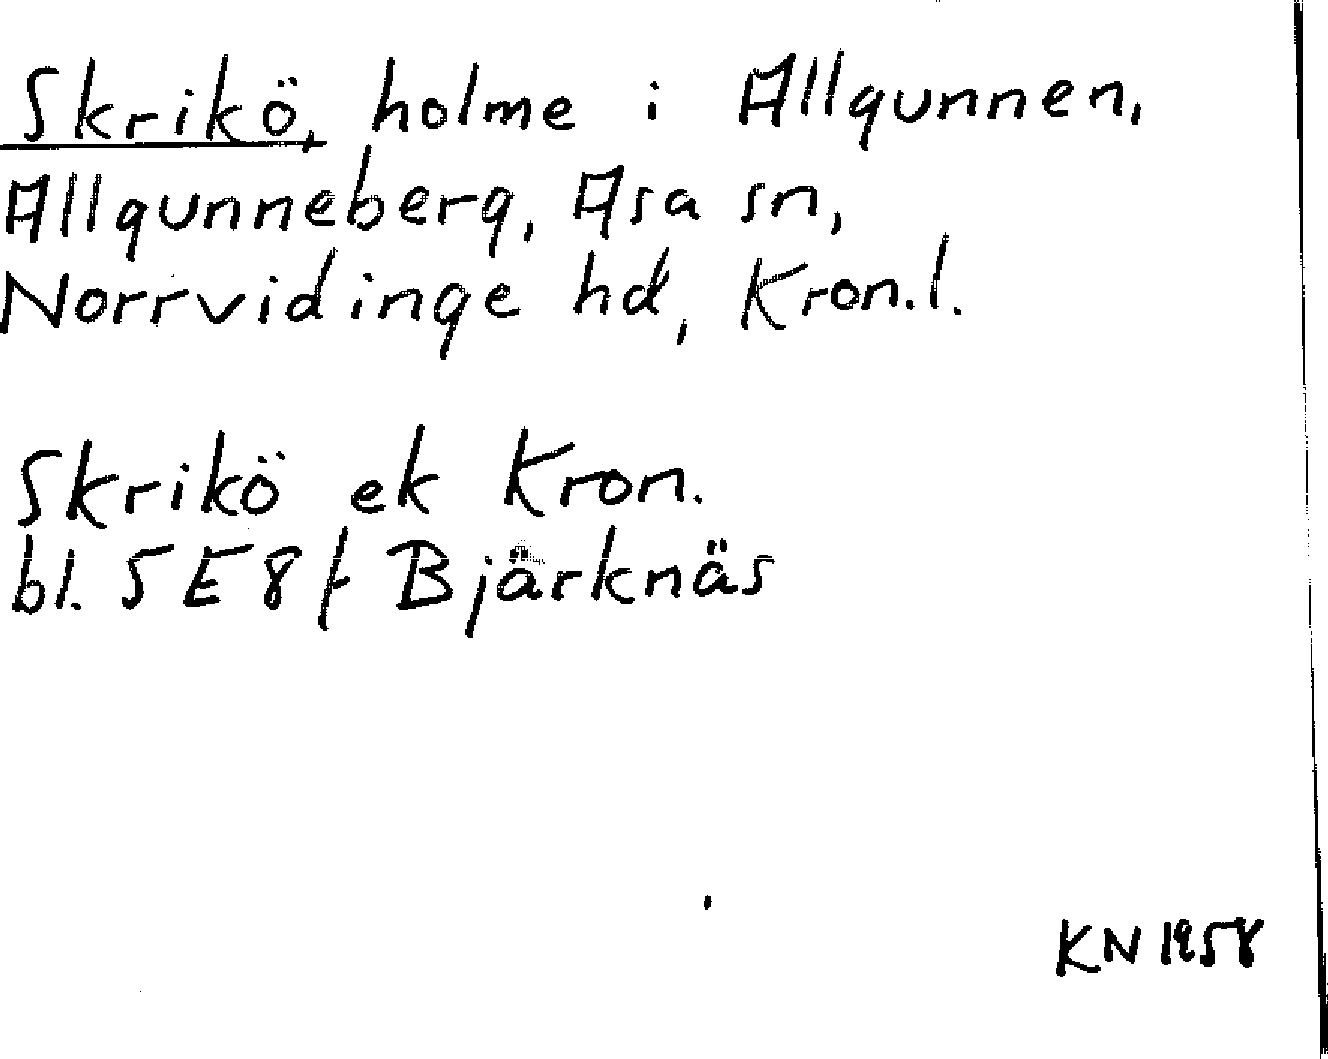 Skrikö, holme i Allgunnen,
Allgunneberg, Asa sn,
Norrvidinge hd, Kron.l.
Skrikö ek Kron.
bl. 5E8f Bjärknäs
KN 1958